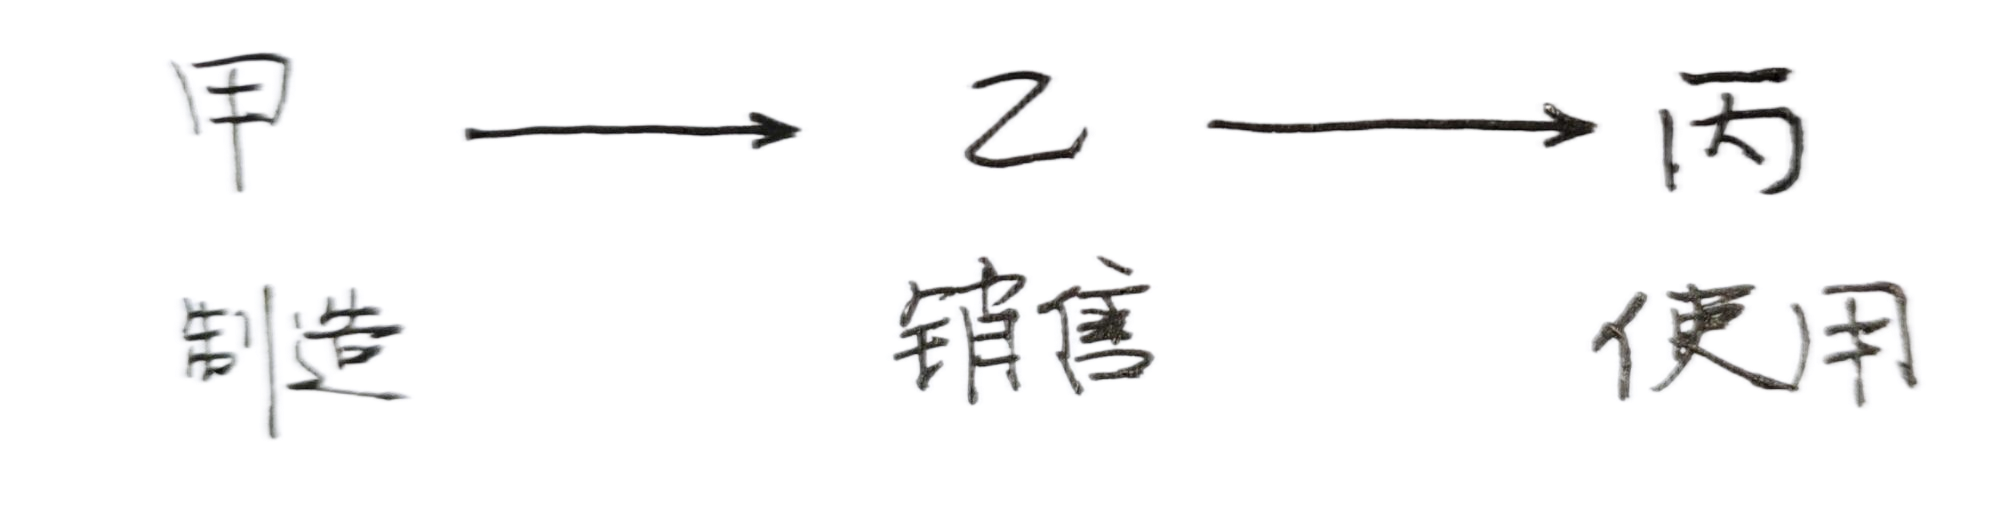 甲 → 乙 → 丙
制造 销售 使用